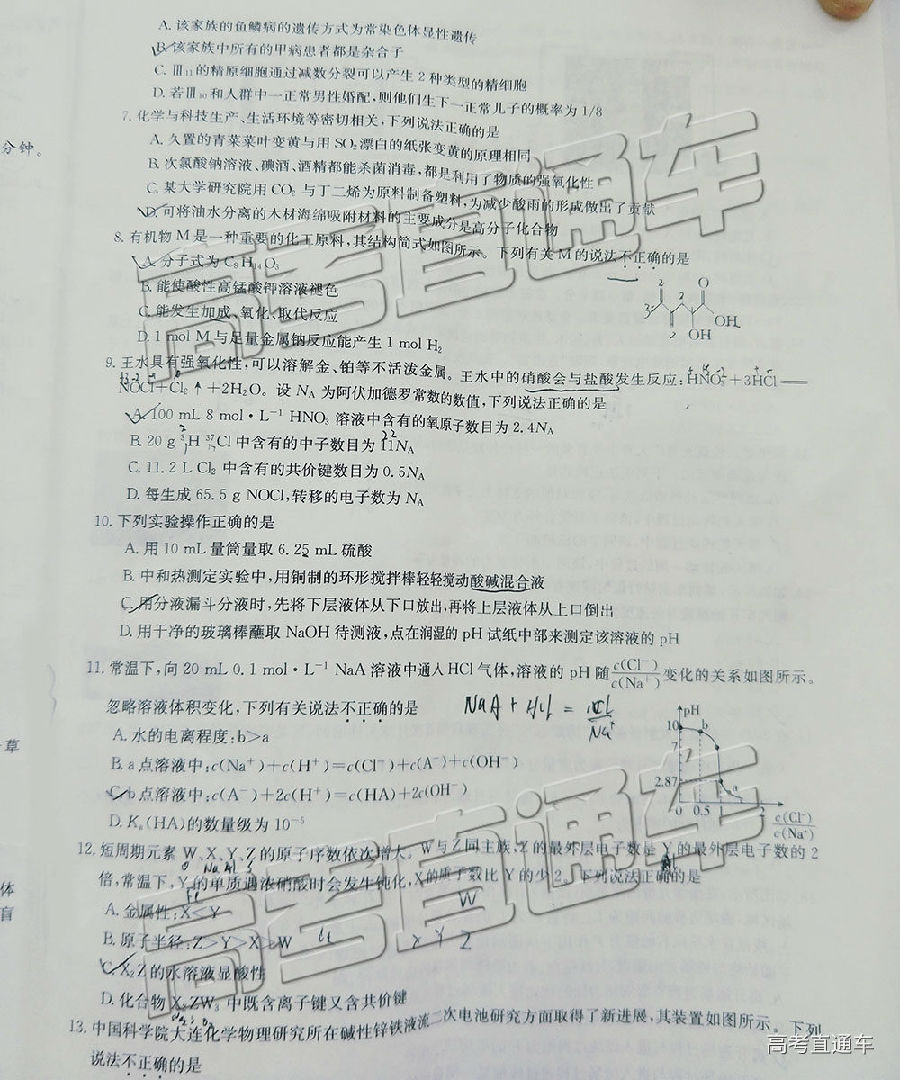 A. 该家族的鱼鳞病的遗传方式为常染色体显性遗传
B. 该家族中所有的甲病患者都是杂合子
C. Ⅲ11的精原细胞通过减数分裂可以产生2种类型的精细胞
D. 若Ⅲ10和人群中一正常男性婚配,则他们生下一正常儿子的概率为1/8
7. 化学与科技生产、生活环境等密切相关,下列说法正确的是
分钟。
A. 久置的青菜菜叶变黄与用SO2漂白的纸张变黄的原理相同
B. 次氯酸钠溶液、碘酒、酒精都能杀菌消毒,都是利用了物质的强氧化性
C. 某大学研究院用CO2与丁二烯为原料制备塑料,为减少酸雨的形成做出了贡献
D. 可将油水分离的木材海绵吸附材料的主要成分是高分子化合物
8. 有机物M是一种重要的化工原料,其结构简式如图所示。下列有关M的说法不正确的是
A. 分子式为C8H14O3
B. 能使酸性高锰酸钾溶液褪色
C. 能发生加成、氧化、取代反应
D. 1 mol M与足量金属钠反应能产生1 mol H2
O
OH
OH
9. 王水具有强氧化性,可以溶解金、铂等不活泼金属。王水中的硝酸会与盐酸发生反应:HNO3+3HCl——
NOCl+Cl2↑+2H2O。设NA为阿伏加德罗常数的数值,下列说法正确的是
A. 100 mL 8 mol·L⁻¹ HNO3溶液中含有的氧原子数目为2.4NA
B. 20 g ³₁H ³⁷Cl中含有的中子数目为11NA
C. 11.2 L Cl2中含有的共价键数目为0.5NA
D. 每生成65.5 g NOCl,转移的电子数为NA
10. 下列实验操作正确的是
A. 用10 mL量筒量取6.25 mL硫酸
B. 中和热测定实验中,用铜制的环形搅拌棒轻轻搅动酸碱混合液
C. 用分液漏斗分液时,先将下层液体从下口放出,再将上层液体从上口倒出
D. 用干净的玻璃棒蘸取NaOH待测液,点在润湿的pH试纸中部来测定该溶液的pH
11. 常温下,向20 mL 0.1 mol·L⁻¹ NaA溶液中通入HCl气体,溶液的pH随c(Cl⁻)/c(Na⁺)变化的关系如图所示。
忽略溶液体积变化,下列有关说法不正确的是
NaA + HCl =
A. 水的电离程度:b>a
B. a点溶液中:c(Na⁺)+c(H⁺)=c(Cl⁻)+c(A⁻)+c(OH⁻)
C. b点溶液中:c(A⁻)+2c(H⁺)=c(HA)+2c(OH⁻)
D. Ka(HA)的数量级为10⁻⁵
pH
10
b
7
2.87
a
0 0.5 1 2
c(Cl⁻)
c(Na⁺)
12. 短周期元素W、X、Y、Z的原子序数依次增大。W与Z同主族,Z的最外层电子数是Y的最外层电子数的2
倍,常温下,Y的单质遇浓硝酸时会发生钝化,X的质子数比Y的少2。下列说法正确的是
A. 金属性:X<Y
B. 原子半径:Z>Y>X>W
C. X2Z的水溶液显酸性
D. 化合物X2ZW3中既含离子键又含共价键
13. 中国科学院大连化学物理研究所在碱性锌铁液流二次电池研究方面取得了新进展,其装置如图所示。下列
说法不正确的是
章
体
盲
高考直通车
高考直通车
高考直通车